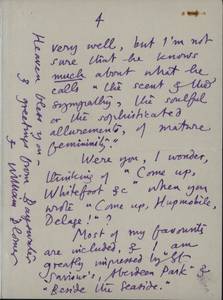 4
very well, but I'm not
sure that he knows
much about what he
calls "the scent & the
sympathy, the soulful
or the sophisticated
allurements, of mature
femininity."
Were you, I wonder,
thinking of "Come up,
Whitefoot &c" when you
wrote "Come up, Hupmobile,
Delage!"?
Most of my favourites
are included. & I am
greatly impressed by "St
Saviour's, Aberdeen Park" &
"Beside the Seaside."
Heaven bless you —
& greetings from
& William